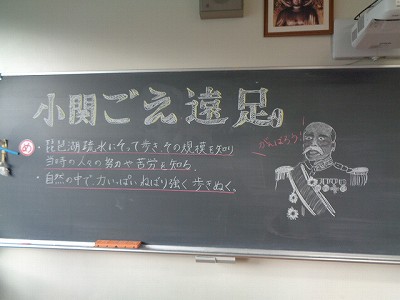 小関ごえ遠足。
め ・琵琶湖疏水にそって歩き、その規模を知り
当時の人々の努力や苦労を知る。
・自然の中で、力いっぱいねばり強く歩きぬく。
がんばろう!